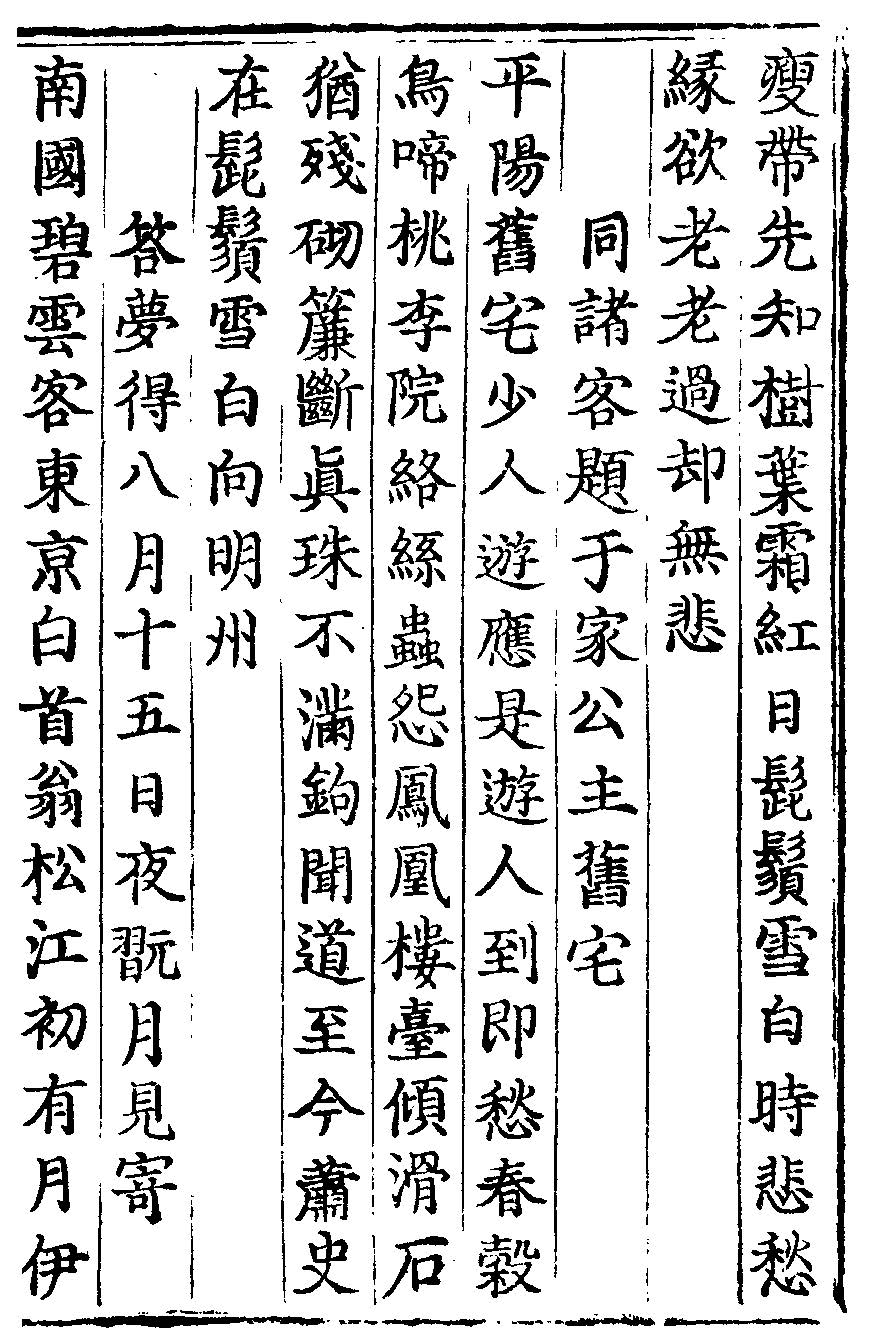 瘦帶先知樹葉霜紅日髭鬚雪白時悲愁
緣欲老老過却無悲
同諸客題于家公主舊宅
平陽舊宅少人遊應是遊人到即愁春穀
鳥啼桃李院絡絲蟲怨鳳凰樓臺傾滑石
猶殘砌簾斷眞珠不滿鉤聞道至今蕭史
在髭鬚雪白向明州
答夢得八月十五日夜翫月見寄
南國碧雲客東京白首翁松江初有月伊